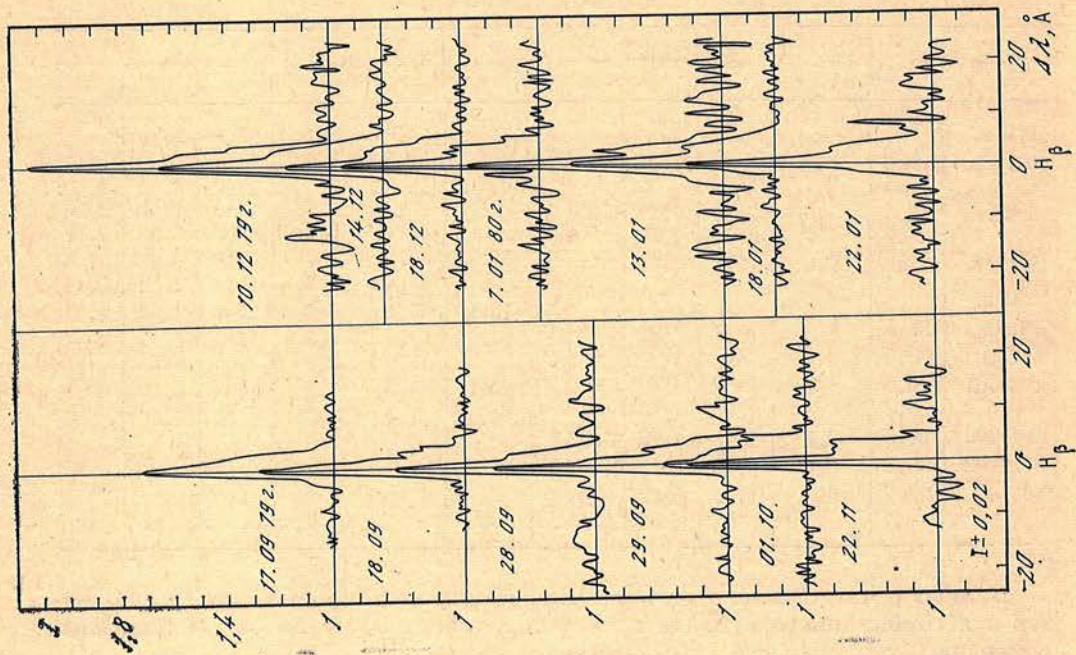 2
1,8
1,4
1
1
1
1
1
1
17.09 79г.
18.09
28.09
29.09
01.10.
22.11
I±0,02
-20
0
20
H β
10.12 79г.
14.12
18.12
7.01 80г.
13.01
18.01
22.01
-20
0
20
H β
Δλ, Å